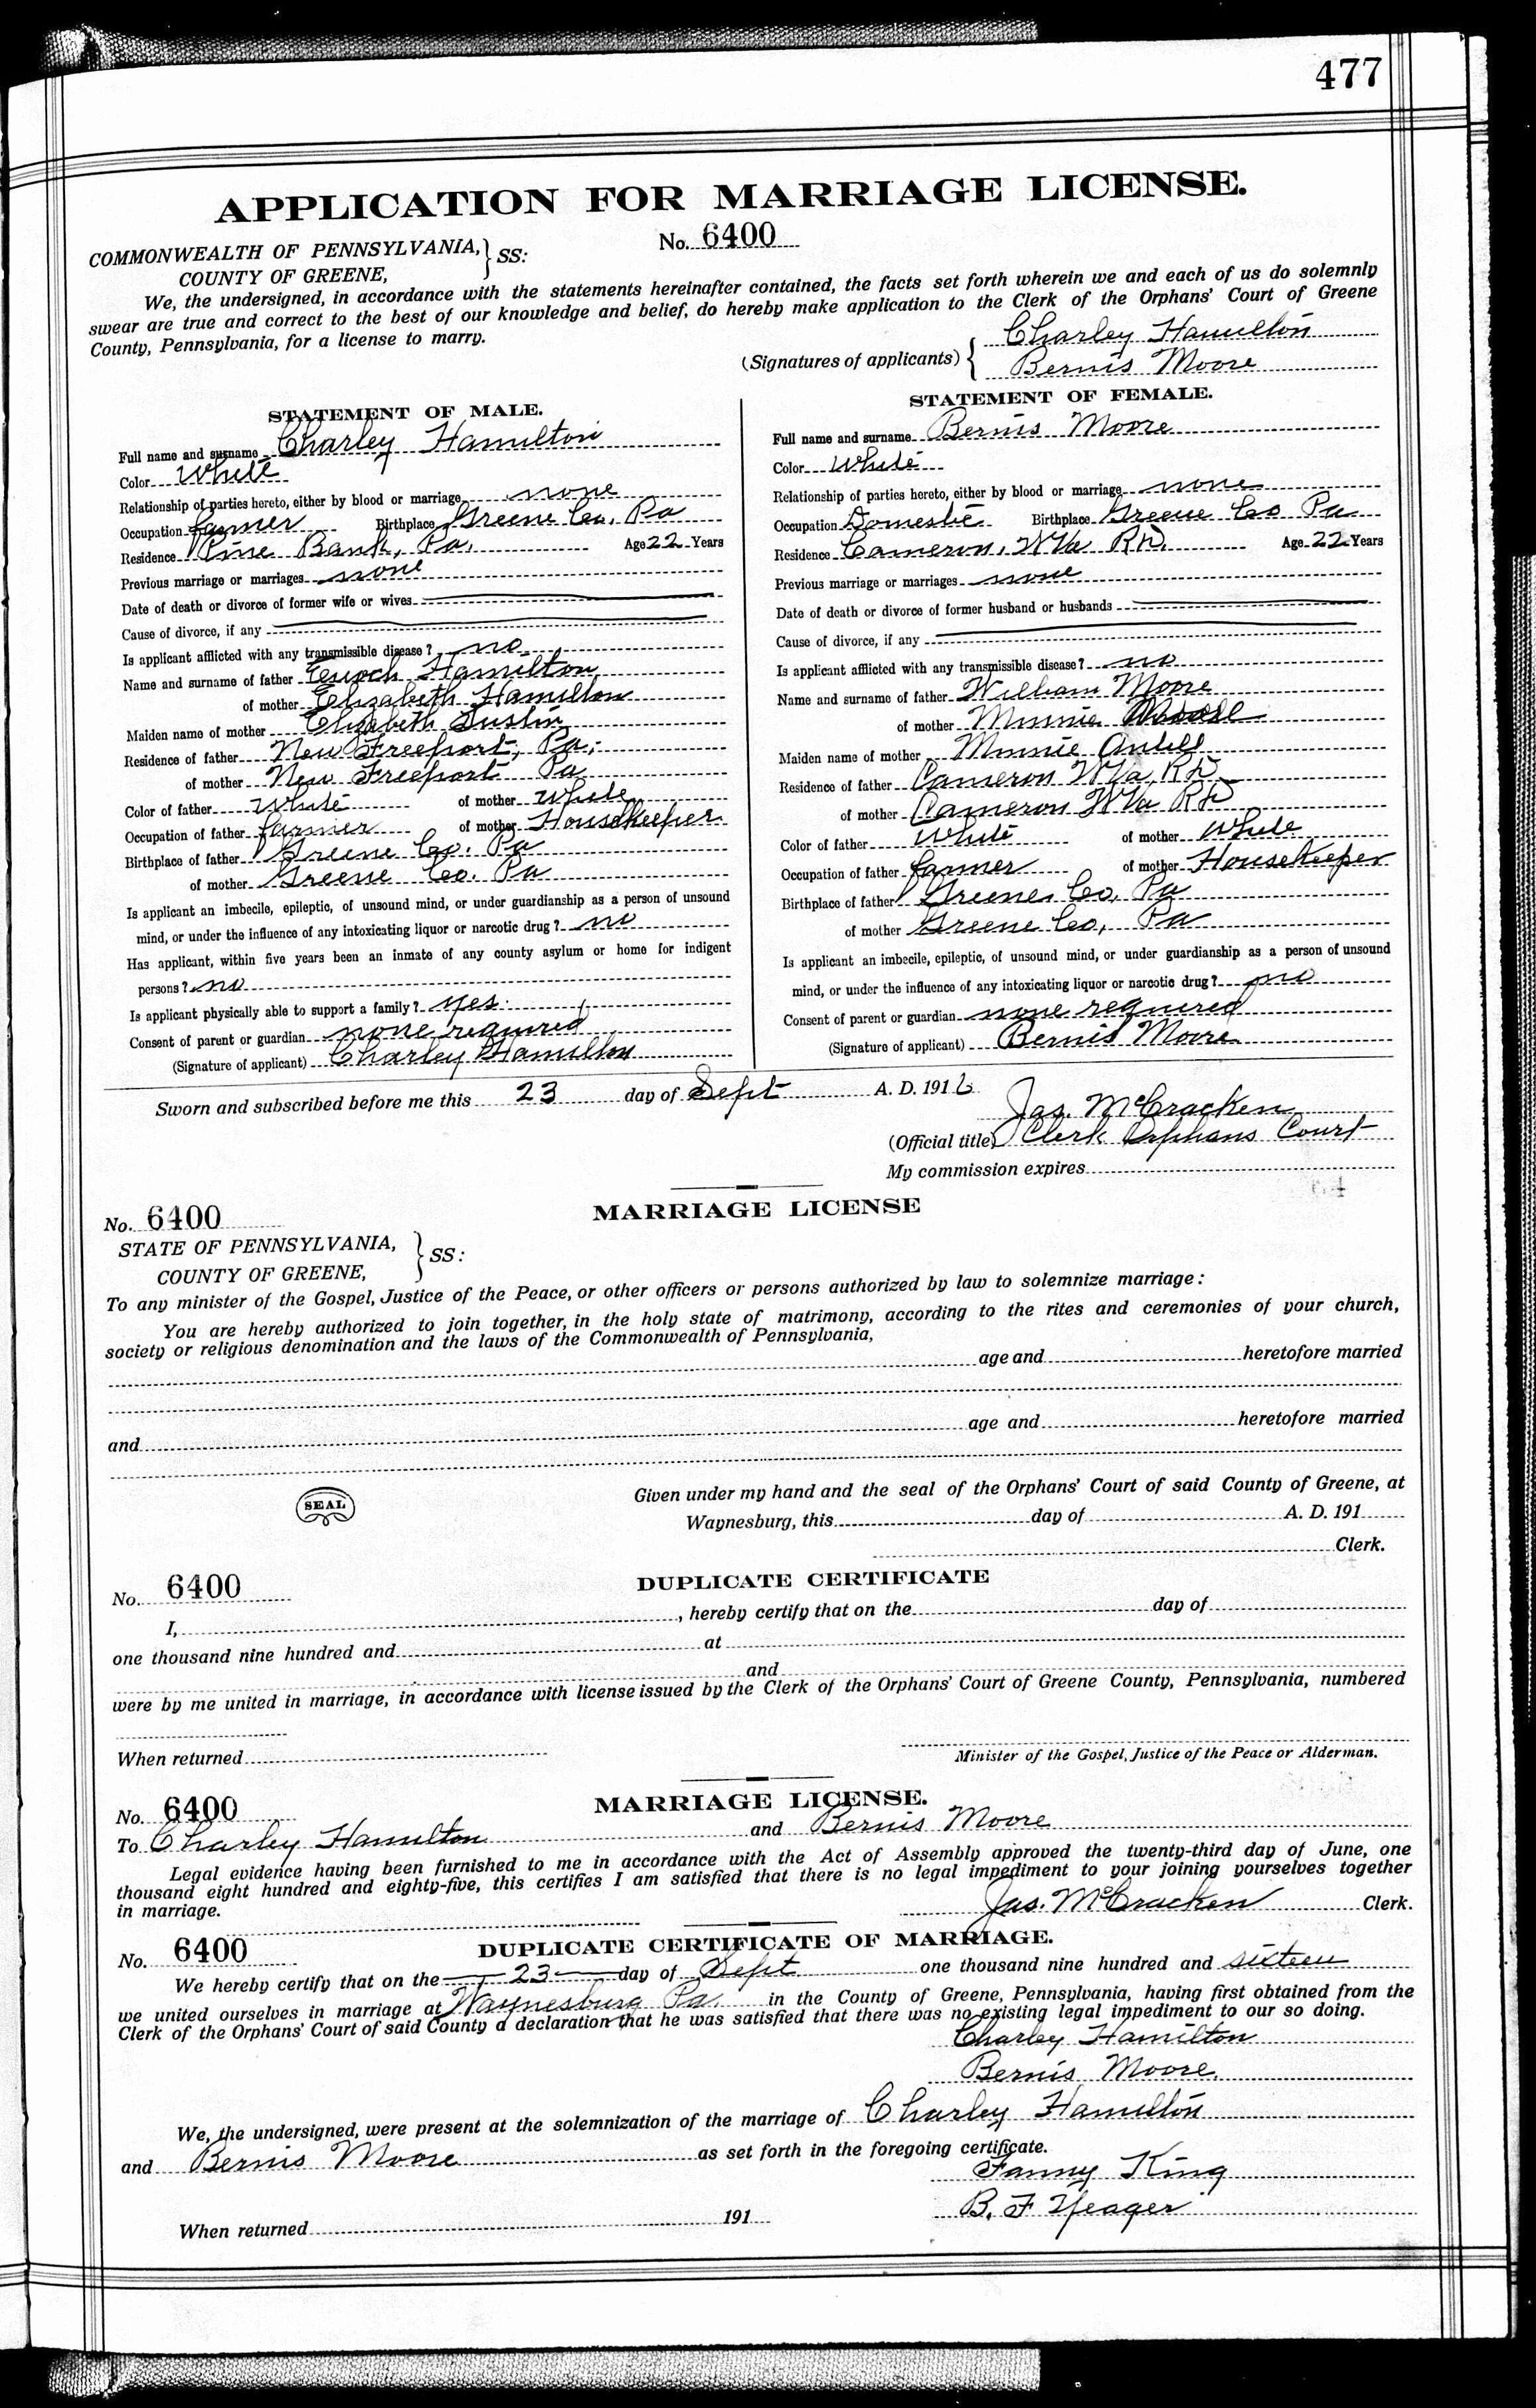 477
APPLICATION FOR MARRIAGE LICENSE.
No. 6400
COMMONWEALTH OF PENNSYLVANIA, } SS:
COUNTY OF GREENE,
We, the undersigned, in accordance with the statements hereinafter contained, the facts set forth wherein we and each of us do solemnly
swear are true and correct to the best of our knowledge and belief, do hereby make application to the Clerk of the Orphans' Court of Greene
County, Pennsylvania, for a license to marry.
(Signatures of applicants) { Charley Hamilton
Bernis Moore
STATEMENT OF MALE.
Full name and surname Charley Hamilton
Color White
Relationship of parties hereto, either by blood or marriage none
Occupation farmer Birthplace Greene Co. Pa
Residence Pine Bank, Pa. Age 22 Years
Previous marriage or marriages none
Date of death or divorce of former wife or wives
Cause of divorce, if any
Is applicant afflicted with any transmissible disease? no
Name and surname of father Enoch Hamilton
of mother Elizabeth Hamilton
Maiden name of mother Elizabeth Dustin
Residence of father New Freeport, Pa.
of mother New Freeport Pa
Color of father White of mother White
Occupation of father farmer of mother Housekeeper
Birthplace of father Greene Co. Pa
of mother Greene Co. Pa
Is applicant an imbecile, epileptic, of unsound mind, or under guardianship as a person of unsound
mind, or under the influence of any intoxicating liquor or narcotic drug? no
Has applicant, within five years been an inmate of any county asylum or home for indigent
persons? no
Is applicant physically able to support a family? yes.
Consent of parent or guardian none required
(Signature of applicant) Charley Hamilton
STATEMENT OF FEMALE.
Full name and surname Bernis Moore
Color White
Relationship of parties hereto, either by blood or marriage none
Occupation Domestic Birthplace Greene Co Pa
Residence Cameron, W Va RD. Age 22 Years
Previous marriage or marriages none
Date of death or divorce of former husband or husbands
Cause of divorce, if any
Is applicant afflicted with any transmissible disease? no
Name and surname of father William Moore
of mother Minnie Moore
Maiden name of mother Minnie Antill
Residence of father Cameron W Va, RD
of mother Cameron W Va RD
Color of father White of mother White
Occupation of father farmer of mother Housekeeper
Birthplace of father Greene Co, Pa
of mother Greene Co, Pa
Is applicant an imbecile, epileptic, of unsound mind, or under guardianship as a person of unsound
mind, or under the influence of any intoxicating liquor or narcotic drug? no
Consent of parent or guardian none required
(Signature of applicant) Bernis Moore
Sworn and subscribed before me this 23 day of Sept A. D. 1916
Jas. McCracken
(Official title) Clerk Orphans Court
My commission expires
No. 6400 MARRIAGE LICENSE
STATE OF PENNSYLVANIA, } SS:
COUNTY OF GREENE,
To any minister of the Gospel, Justice of the Peace, or other officers or persons authorized by law to solemnize marriage:
You are hereby authorized to join together, in the holy state of matrimony, according to the rites and ceremonies of your church,
society or religious denomination and the laws of the Commonwealth of Pennsylvania,
age and heretofore married
and age and heretofore married
SEAL
Given under my hand and the seal of the Orphans' Court of said County of Greene, at
Waynesburg, this day of A. D. 191
Clerk.
No. 6400 DUPLICATE CERTIFICATE
I, , hereby certify that on the day of
one thousand nine hundred and at
and
were by me united in marriage, in accordance with license issued by the Clerk of the Orphans' Court of Greene County, Pennsylvania, numbered
When returned Minister of the Gospel, Justice of the Peace or Alderman.
No. 6400 MARRIAGE LICENSE.
To Charley Hamilton and Bernis Moore
Legal evidence having been furnished to me in accordance with the Act of Assembly approved the twenty-third day of June, one
thousand eight hundred and eighty-five, this certifies I am satisfied that there is no legal impediment to your joining yourselves together
in marriage. Jas. McCracken Clerk.
No. 6400 DUPLICATE CERTIFICATE OF MARRIAGE.
We hereby certify that on the 23 day of Sept one thousand nine hundred and sixteen
we united ourselves in marriage at Waynesburg Pa. in the County of Greene, Pennsylvania, having first obtained from the
Clerk of the Orphans' Court of said County a declaration that he was satisfied that there was no existing legal impediment to our so doing.
Charley Hamilton
Bernis Moore
We, the undersigned, were present at the solemnization of the marriage of Charley Hamilton
and Bernis Moore as set forth in the foregoing certificate.
Fanny King
B. F Yeager
When returned 191